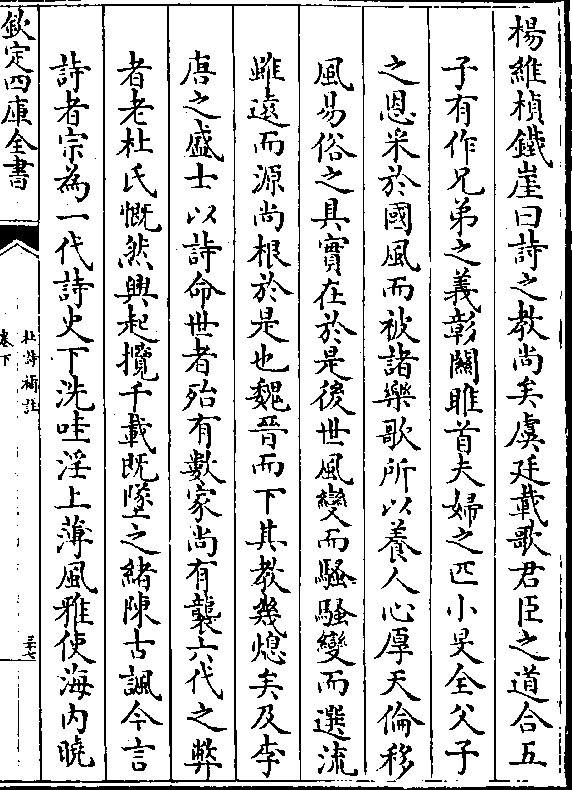 楊維楨鐵崖曰詩之教尚矣虞廷載歌君臣之道合五
子有作兄弟之義彰關雎首夫婦之匹小旻全父子
之恩米於國風而被諸樂歌所以養人心厚天倫移
風易俗之具實在於是後世風變而騷騷變而選流
雖遠而源尚根於是也魏晉而下其教幾熄矣及李
唐之盛士以詩命世者殆有數家尚有襲六代之弊
者老杜氏慨然興起攬千載既墜之緒陳古諷今言
詩者宗為一代詩史下洗哇淫上薄風雅使海内曉
欽定四庫全書
杜詩攟
卷下